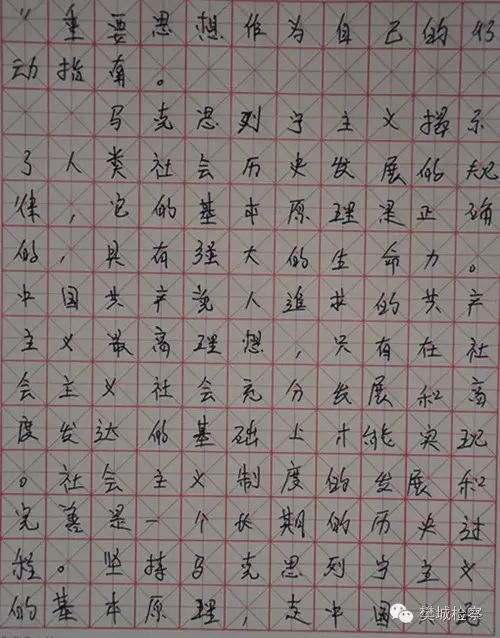 ”重要思想作为自己的行
动指南。
马克思列宁主义揭示
了人类社会历史发展的规
律，它的基本原理是正确
的，具有强大的生命力。
中国共产党人追求的共产
主义最高理想，只有在社
会主义社会充分发展和高
度发达的基础上才能实现
。社会主义制度的发展和
完善是一个长期的历史过
程。坚持马克思列宁主义
的基本原理，走中国
樊城检察